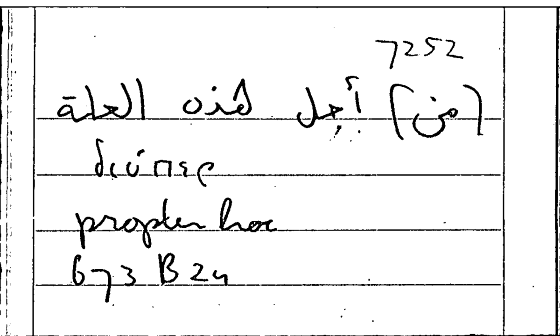 7252
(من) أجل هذه العلة
διόπερ
propter hoc
673 B 24